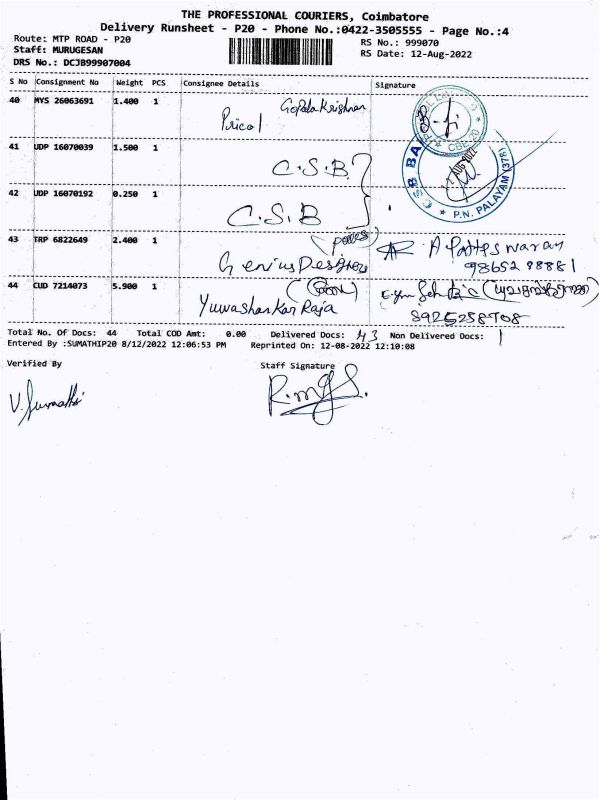 THE PROFESSIONAL COURIERS, Coimbatore
Delivery Runsheet - P20 - Phone No.:0422-3505555 - Page No.:4
Route: MTP ROAD - P20
RS No.: 999070
Staff: MURUGESAN
RS Date: 12-Aug-2022
DRS No.: DCJB99907004
S No Consignment No Weight PCS Consignee Details Signature
40 MYS 26063691 1.400 1 Gopala Krishnan
Pricol
41 UDP 16070039 1.500 1 C.S.B.
42 UDP 16070192 0.250 1 C.S.B
CSB BA
P.N. PALAYAM (378)
43 TRP 6822649 2.400 1
Genius Designers
44 CUD 7214073 5.900 1
Yuvashankar Raja
8925258708
Total No. Of Docs: 44 Total COD Amt: 0.00 Delivered Docs: 43 Non Delivered Docs: 1
Entered By :SUMATHIP20 8/12/2022 12:06:53 PM Reprinted On: 12-08-2022 12:10:08
Verified By Staff Signature
V. Sumathi